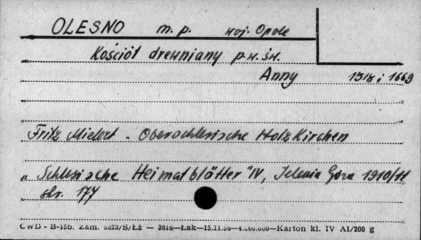 OLESNO m. p. woj. Opole
Kościół drewniany p.w. św.
Anny 1518 i 1669
Fritz Mielert - Oberschlesische Holzkirchen
"Schlesische Heimatblätter" IV, Jelenia Góra 1910/11
str. 174
CWD - B-15b. Zam. /S/Łż — Łak—15.11.56— —Karton kl. IV A1/200 g